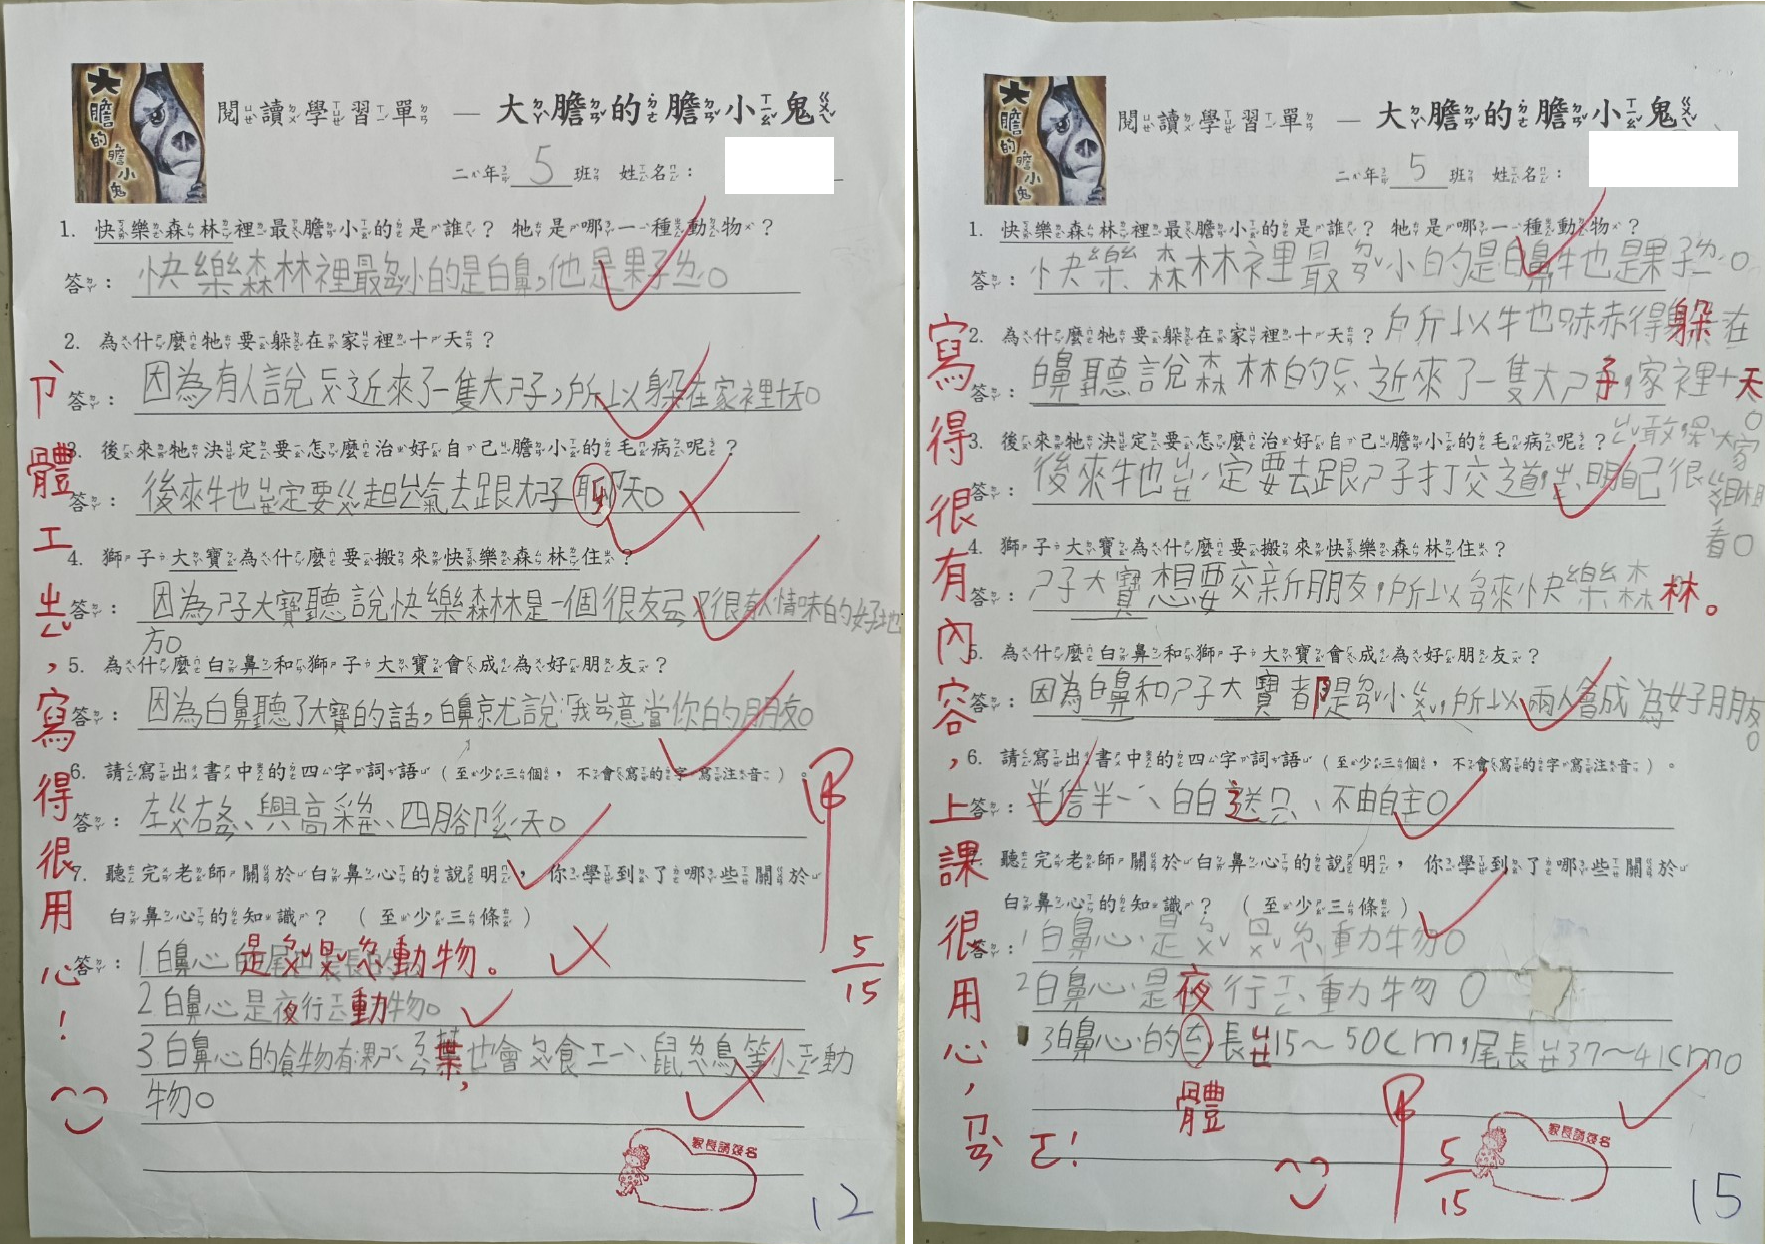 大膽的膽小鬼
閱讀學習單 — 大膽的膽小鬼
二年 5 班 姓名：
1. 快樂森林裡最膽小的是誰？ 牠是哪一種動物？
答： 快樂森林裡最ㄉㄢˇ小的是白鼻，他是果子ㄌㄧˊ。
2. 為什麼牠要躲在家裡十天？
答： 因為有人說最近來了一隻大ㄕ子，所以躲在家裡十天。
3. 後來牠決定要怎麼治好自己膽小的毛病呢？
4. 獅子大寶為什麼要搬來快樂森林住？
答： 因為ㄕ子大寶聽說快樂森林是一個很友ㄕㄢˋ又很有人情味的好地
方。
5. 為什麼白鼻和獅子大寶會成為好朋友？
答： 因為白鼻聽了大寶的話，白鼻就說:我ㄩㄢˋ意當你的朋友。
6. 請寫出書中的四字詞語（至少三個，不會寫的字寫注音）。
7. 聽完老師關於白鼻心的說明，你學到了哪些關於
白鼻心的知識？ （至少三條）
答： 1白鼻心是ㄅㄨˇㄖㄨˇㄌㄟˋ動物。
2白鼻心是夜行ㄒㄧㄥˋ動物。
物。
字體工ㄓㄥˇ，寫得很用心！
甲
5/15
家長請簽名
12
大膽的膽小鬼
閱讀學習單 — 大膽的膽小鬼
二年 5 班 姓名：
1. 快樂森林裡最膽小的是誰？ 牠是哪一種動物？
答： 快樂森林裡最ㄉㄢˇ小的是白鼻牠是果子ㄌㄧˊ。
2. 為什麼牠要躲在家裡十天？ 所以牠嚇得躲在
答： 白鼻聽說森林的最近來了一隻大ㄕ子，家裡十天。
3. 後來牠決定要怎麼治好自己膽小的毛病呢？
4. 獅子大寶為什麼要搬來快樂森林住？
答： ㄕ子大寶想要交新朋友，所以ㄅㄢ來快樂森林。
5. 為什麼白鼻和獅子大寶會成為好朋友？
答： 因為白鼻和ㄕ子大寶都是ㄉㄢˇ小ㄍㄨㄟˇ，所以兩人會成為好朋友。
6. 請寫出書中的四字詞語（至少三個，不會寫的字寫注音）。
答： 半信半ㄧˊ、白白送ㄙˇ、不由自主。
7. 聽完老師關於白鼻心的說明，你學到了哪些關於
白鼻心的知識？ （至少三條）
答： 1白鼻心是ㄅㄨˇㄖㄨˇㄌㄟˋ動物。
2白鼻心是夜行ㄒㄧㄥˋ動物。
3白鼻心的ㄊㄧˇ長ㄓㄜ15～50cm，尾長ㄓㄜ37～41cm。
體
寫得很有內容，上課很用心，ㄇㄢˇ
甲
5/15
家長請簽名
15